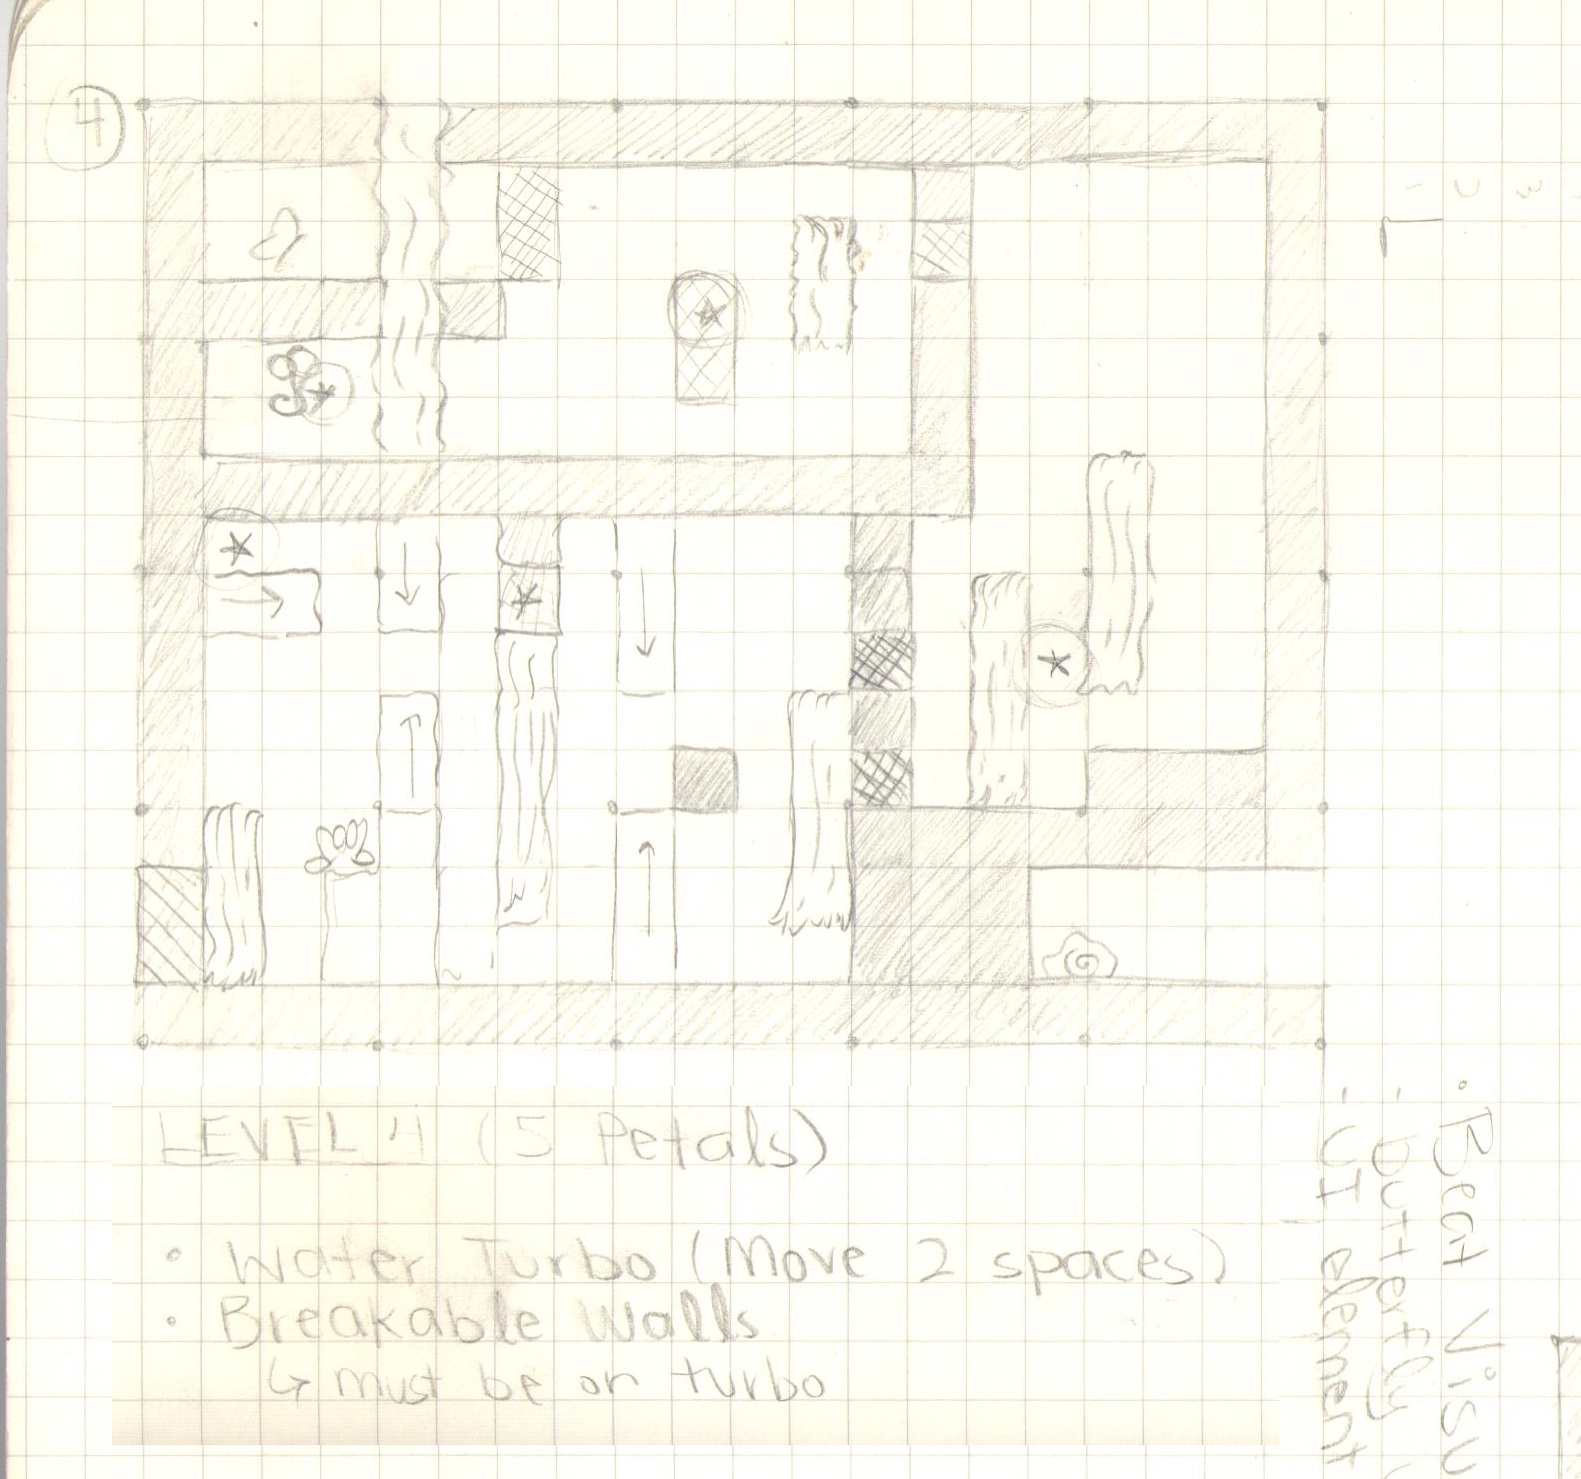 4
1 2 3
LEVEL 4 (5 Petals)
• Water Turbo (Move 2 spaces)
• Breakable Walls
↳ must be on turbo
• Beat Visu
• butterfly
• UI element